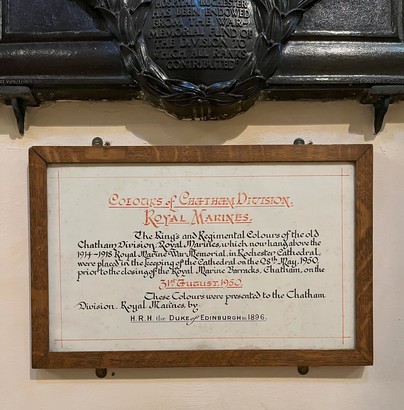 HAS BEEN ENTERED
FROM THE WAR
MEMORIAL FUND OF
THE DIVISION TO
WHICH ALL RANKS
CONTRIBUTED
COLOURS of CHATHAM DIVISION.
ROYAL MARINES.
The King's and Regimental Colours of the old
Chatham Division, Royal Marines, which now hang above the
1914-1918 Royal Marine War Memorial, in Rochester Cathedral
were placed in the keeping of the Cathedral on the 28th May, 1950,
prior to the closing of the Royal Marine Barracks, Chatham, on the
31st August, 1950.
These Colours were presented to the Chatham
Division, Royal Marines, by
H.R.H. the DUKE of EDINBURGH in 1896.